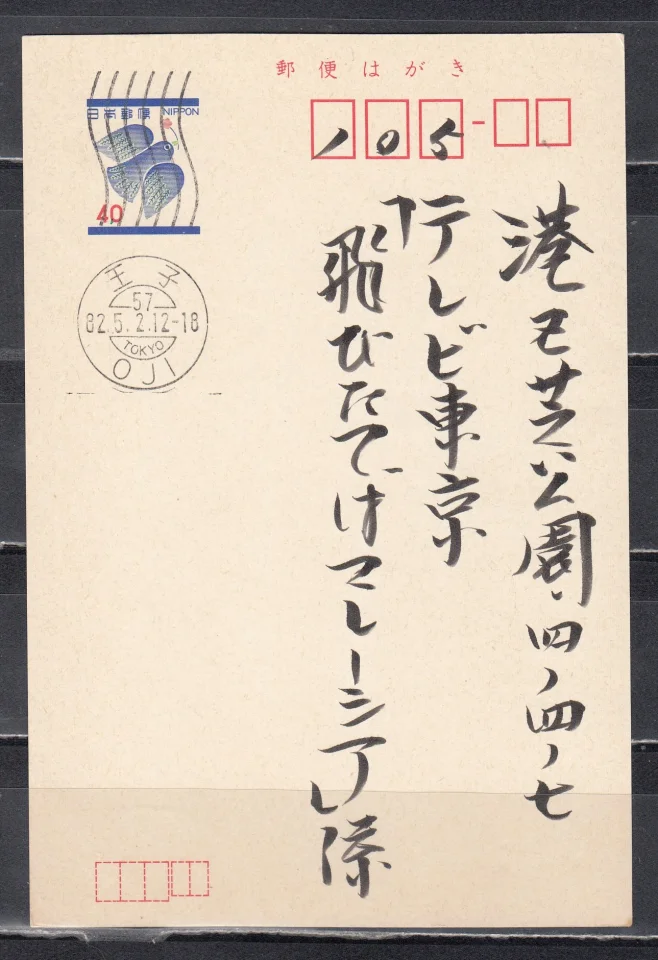 郵便はがき
日本郵便 NIPPON
40
王子
57
82.5.2.12-18
TOKYO
OJI
105
港区芝公園、四ノ四ノ七
テレビ東京
「飛びたてばマレーシア」係